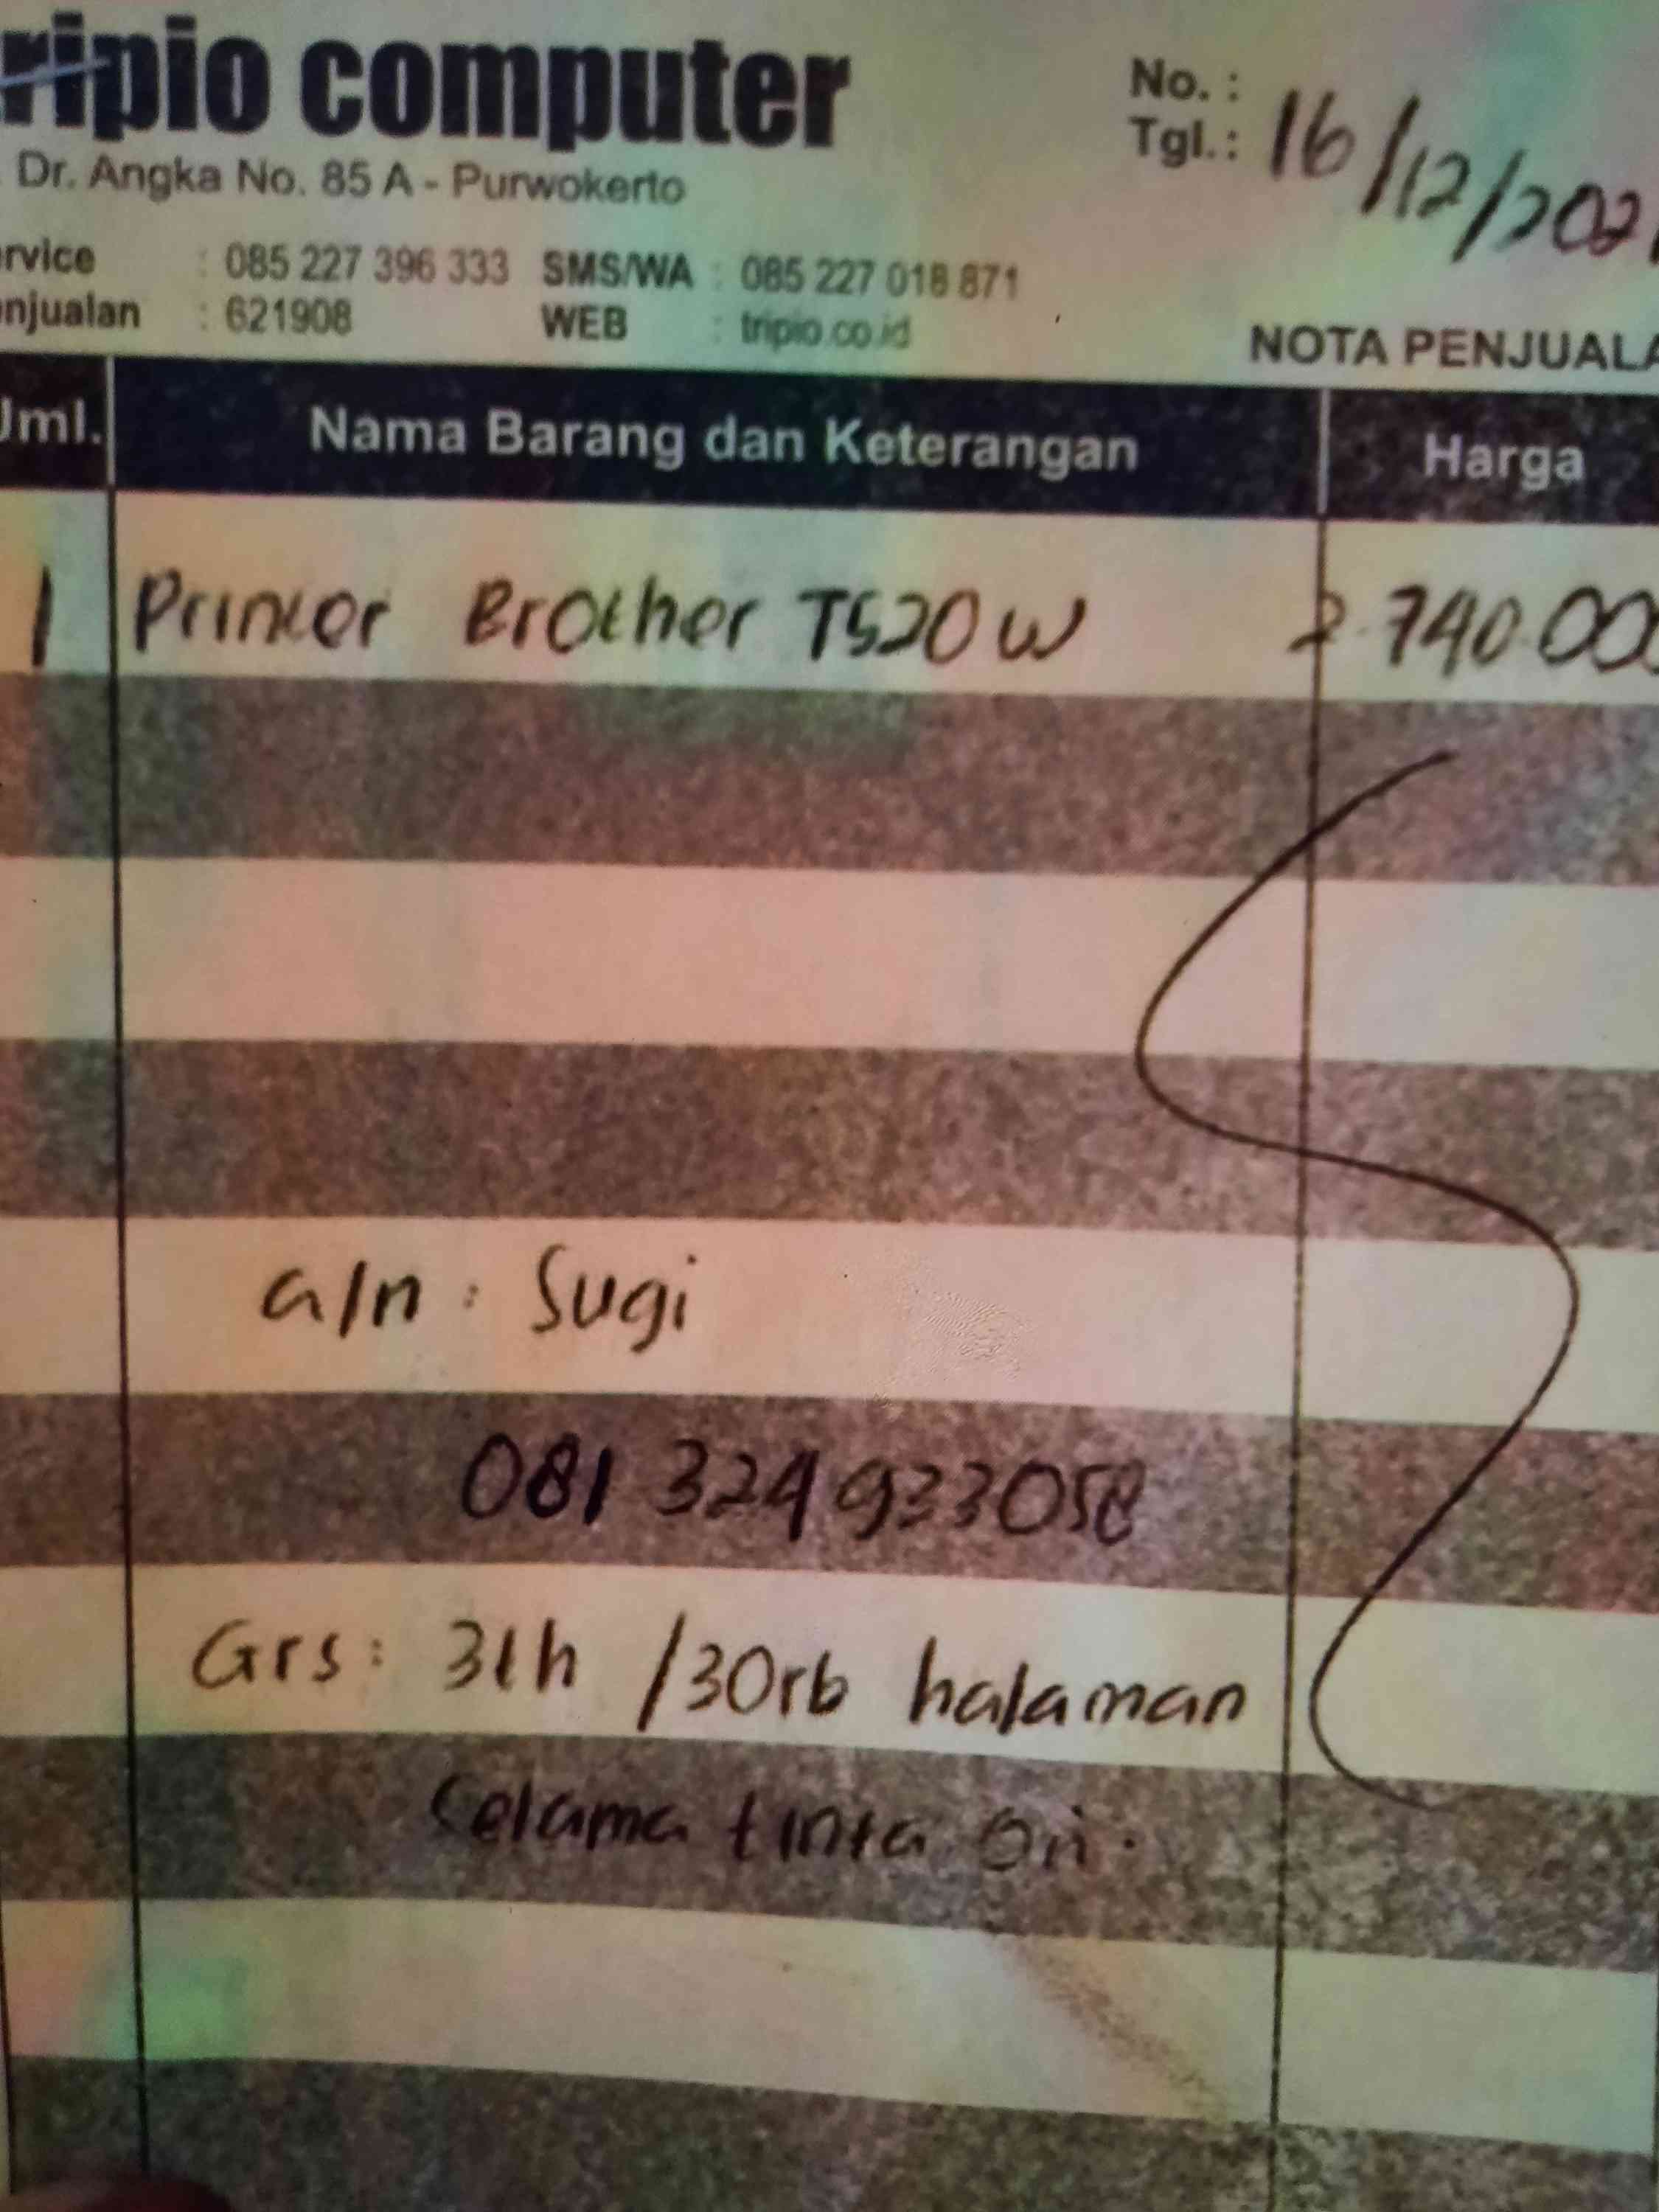 ripio computer
Dr. Angka No. 85 A - Purwokerto
No. :
Tgl. : 16/12/2021
rvice : 085 227 396 333 SMS/WA : 085 227 018 871
njualan : 621908 WEB : tripio.co.id
NOTA PENJUALA
Jml. Nama Barang dan Keterangan Harga
1 Printer Brother T520W 2.740.000
a/n : Sugi
081 324 933058
Grs : 3th /30rb halaman
selama tinta ori.